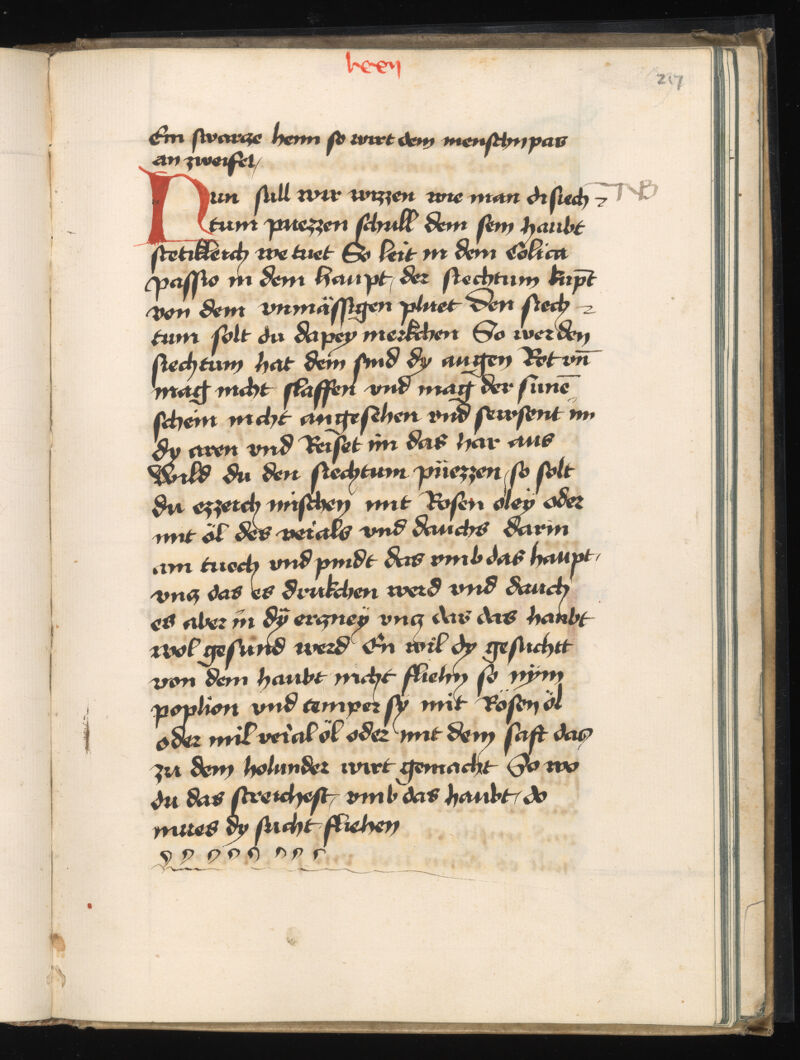 lxxij
217
Ein swarze henn so wirt dem menschn pas
an zweifel
Nun sull wir wizzen wie man di siech
NB
tum puezzen schull dem sein haubt
stetikleich we tuet So leit in dem Colica
passio in dem haupt der siechtum kupt
von dem vnmässigen pluet Den siech
tum solt du dapey merkchen So wer den
siechtum hat dem sind dy augen Rot vn̄
mag nicht slaffen vnd mag der sunē
schein nicht angesehen vnd sewsent im
dy oren vnd Reiset im das har aus
Wild du den siechtum püezzen so solt
du ezzeich mischen mit Rosen oley oder
mit öl des veials vnd dauchs darin
ain tuech vnd pindt das vmb das haupt
vncz das es drukchen werd vnd dauch
es aber in dÿ erczney vncz das das haubt
wol gesund werd En wil dy gesuchtt
von dem haubt nicht fliehn so nÿm
poplion vnd temper sy mit Rösen öl
oder mit veial öl oder mit dem saft das
zu dem holunder wirt gemacht So wo
du das streichest vmb das haubt do
mues dy sucht fliehen